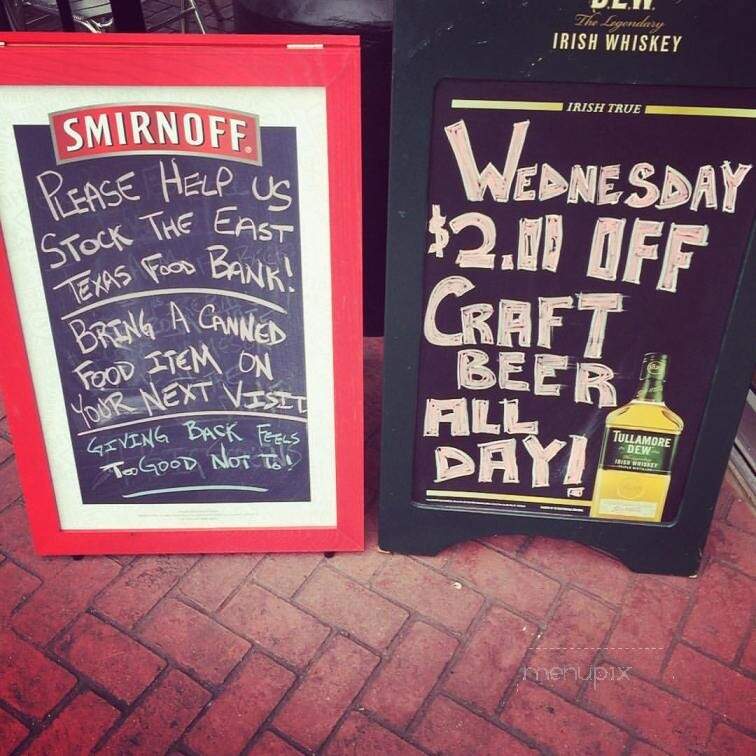 SMIRNOFF
PLEASE HELP US
STOCK THE EAST
TEXAS FOOD BANK!
BRING A CANNED
FOOD ITEM ON
YOUR NEXT VISIT
GIVING BACK FEELS
Too GOOD NOT To!
The Legendary
IRISH WHISKEY
IRISH TRUE
WEDNESDAY
$2.00 OFF
CRAFT
BEER
ALL
DAY!
TULLAMORE
DEW
IRISH WHISKEY
menupix